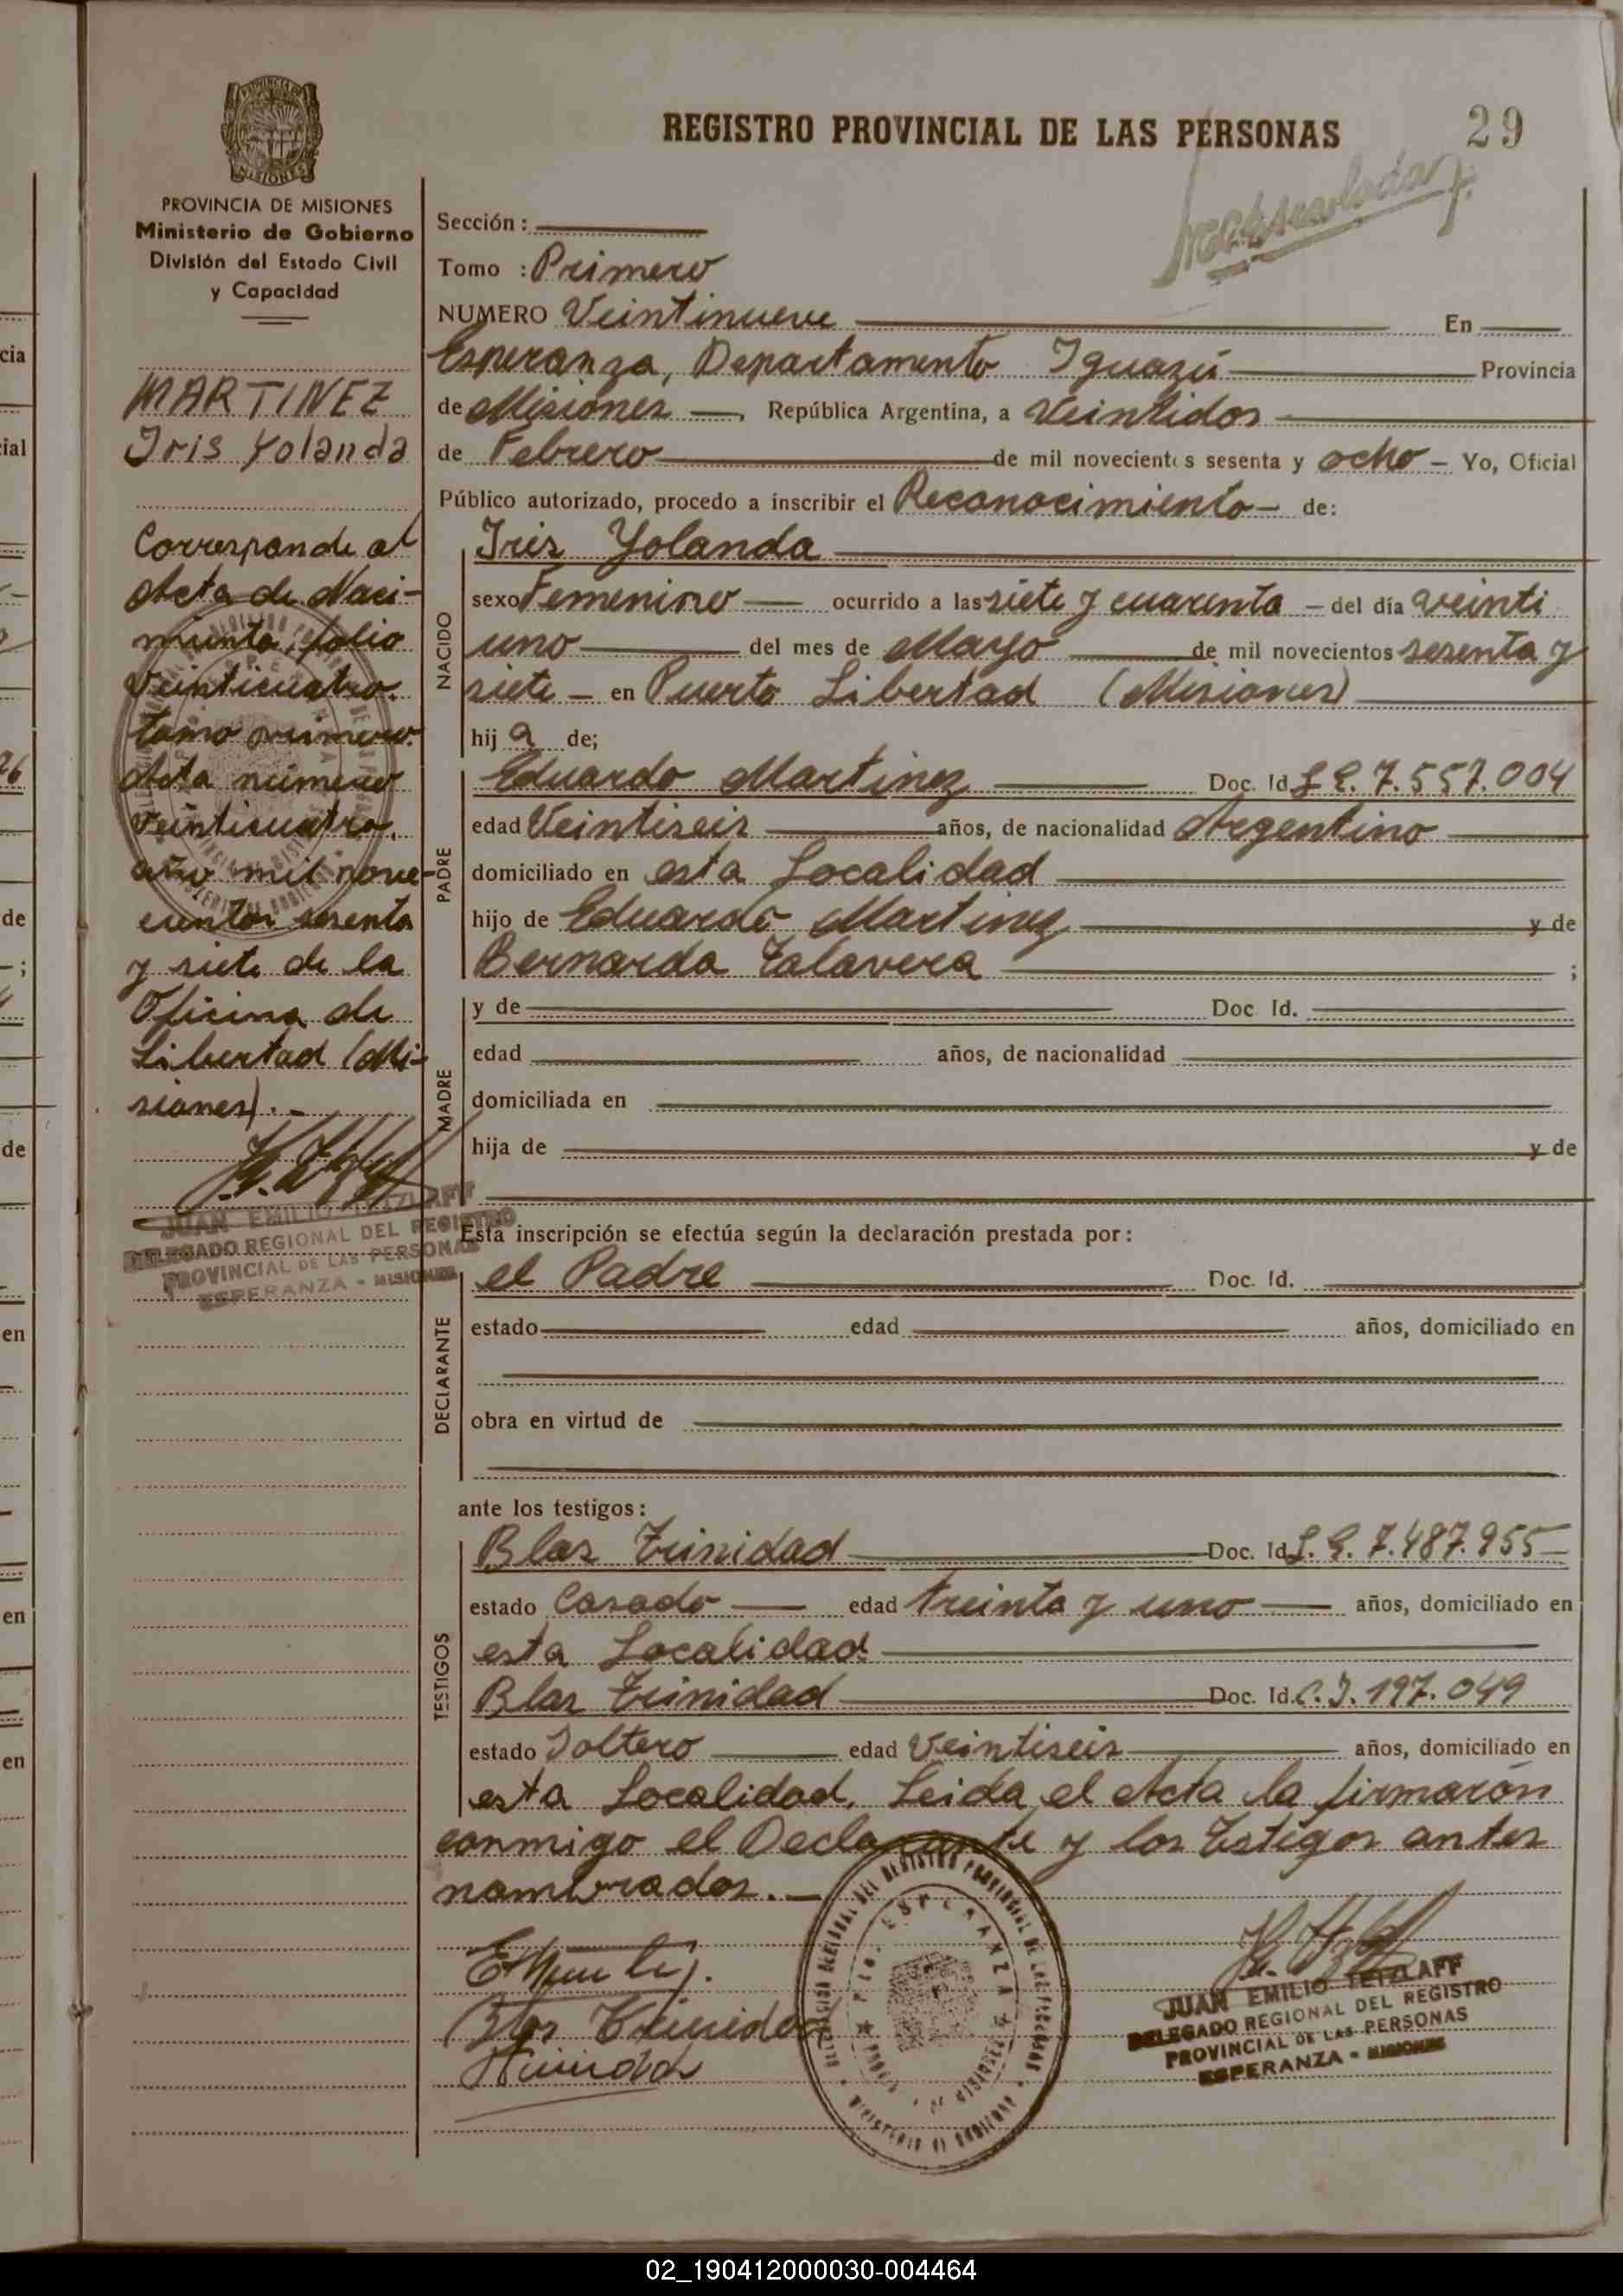 REGISTRO PROVINCIAL DE LAS PERSONAS
29
PROVINCIA DE MISIONES
Ministerio de Gobierno
División del Estado Civil
y Capacidad
MARTINEZ
Iris Yolanda
Corresponde al
Acta de Naci-
miento, folio
veinticuatro.
tomo primero.
Acta número
veinticuatro.
año mil nove-
cientos sesenta
y siete de la
Oficina de
Libertad (Mi-
siones).-
JUAN EMILIO TETZLAFF
DELEGADO REGIONAL DEL REGISTRO
PROVINCIAL DE LAS PERSONAS
ESPERANZA - MISIONES
Sección :
Tomo : Primero
NUMERO Veintinueve En
Esperanza, Departamento Iguazú Provincia
de Misiones, República Argentina, a Veintidos
de Febrero de mil novecientos sesenta y ocho - Yo, Oficial
Público autorizado, procedo a inscribir el Reconocimiento - de:
NACIDO
Iris Yolanda
sexo Femenino ocurrido a las siete y cuarenta - del día veinti
uno del mes de Mayo de mil novecientos sesenta y
siete - en Puerto Libertad (Misiones)
hij a de;
PADRE
Eduardo Martinez Doc. Id L.E. 7.557.004
edad Veintiseis años, de nacionalidad Argentino
domiciliado en esta Localidad
hijo de Eduardo Martinez y de
Bernarda Talavera ;
MADRE
y de Doc. Id.
edad años, de nacionalidad
domiciliada en
hija de y de
Esta inscripción se efectúa según la declaración prestada por :
DECLARANTE
el Padre Doc. Id.
estado edad años, domiciliado en
obra en virtud de
ante los testigos :
TESTIGOS
Blas Trinidad Doc. Id L.E. 7.487.955
estado Casado edad treinta y uno años, domiciliado en
esta Localidad
Blas Trinidad Doc. Id. C.I. 197.049
estado Soltero edad Veintiseis años, domiciliado en
esta Localidad. Leida el Acta la firmarón
conmigo el Declarante y los Testigos antes
nombrados.-
Blas Trinidad
Trinidad
ESPERANZA
JUAN EMILIO TETZLAFF
DELEGADO REGIONAL DEL REGISTRO
PROVINCIAL DE LAS PERSONAS
ESPERANZA - MISIONES
cia
ial
26
de
de
en
en
en
02_190412000030-004464